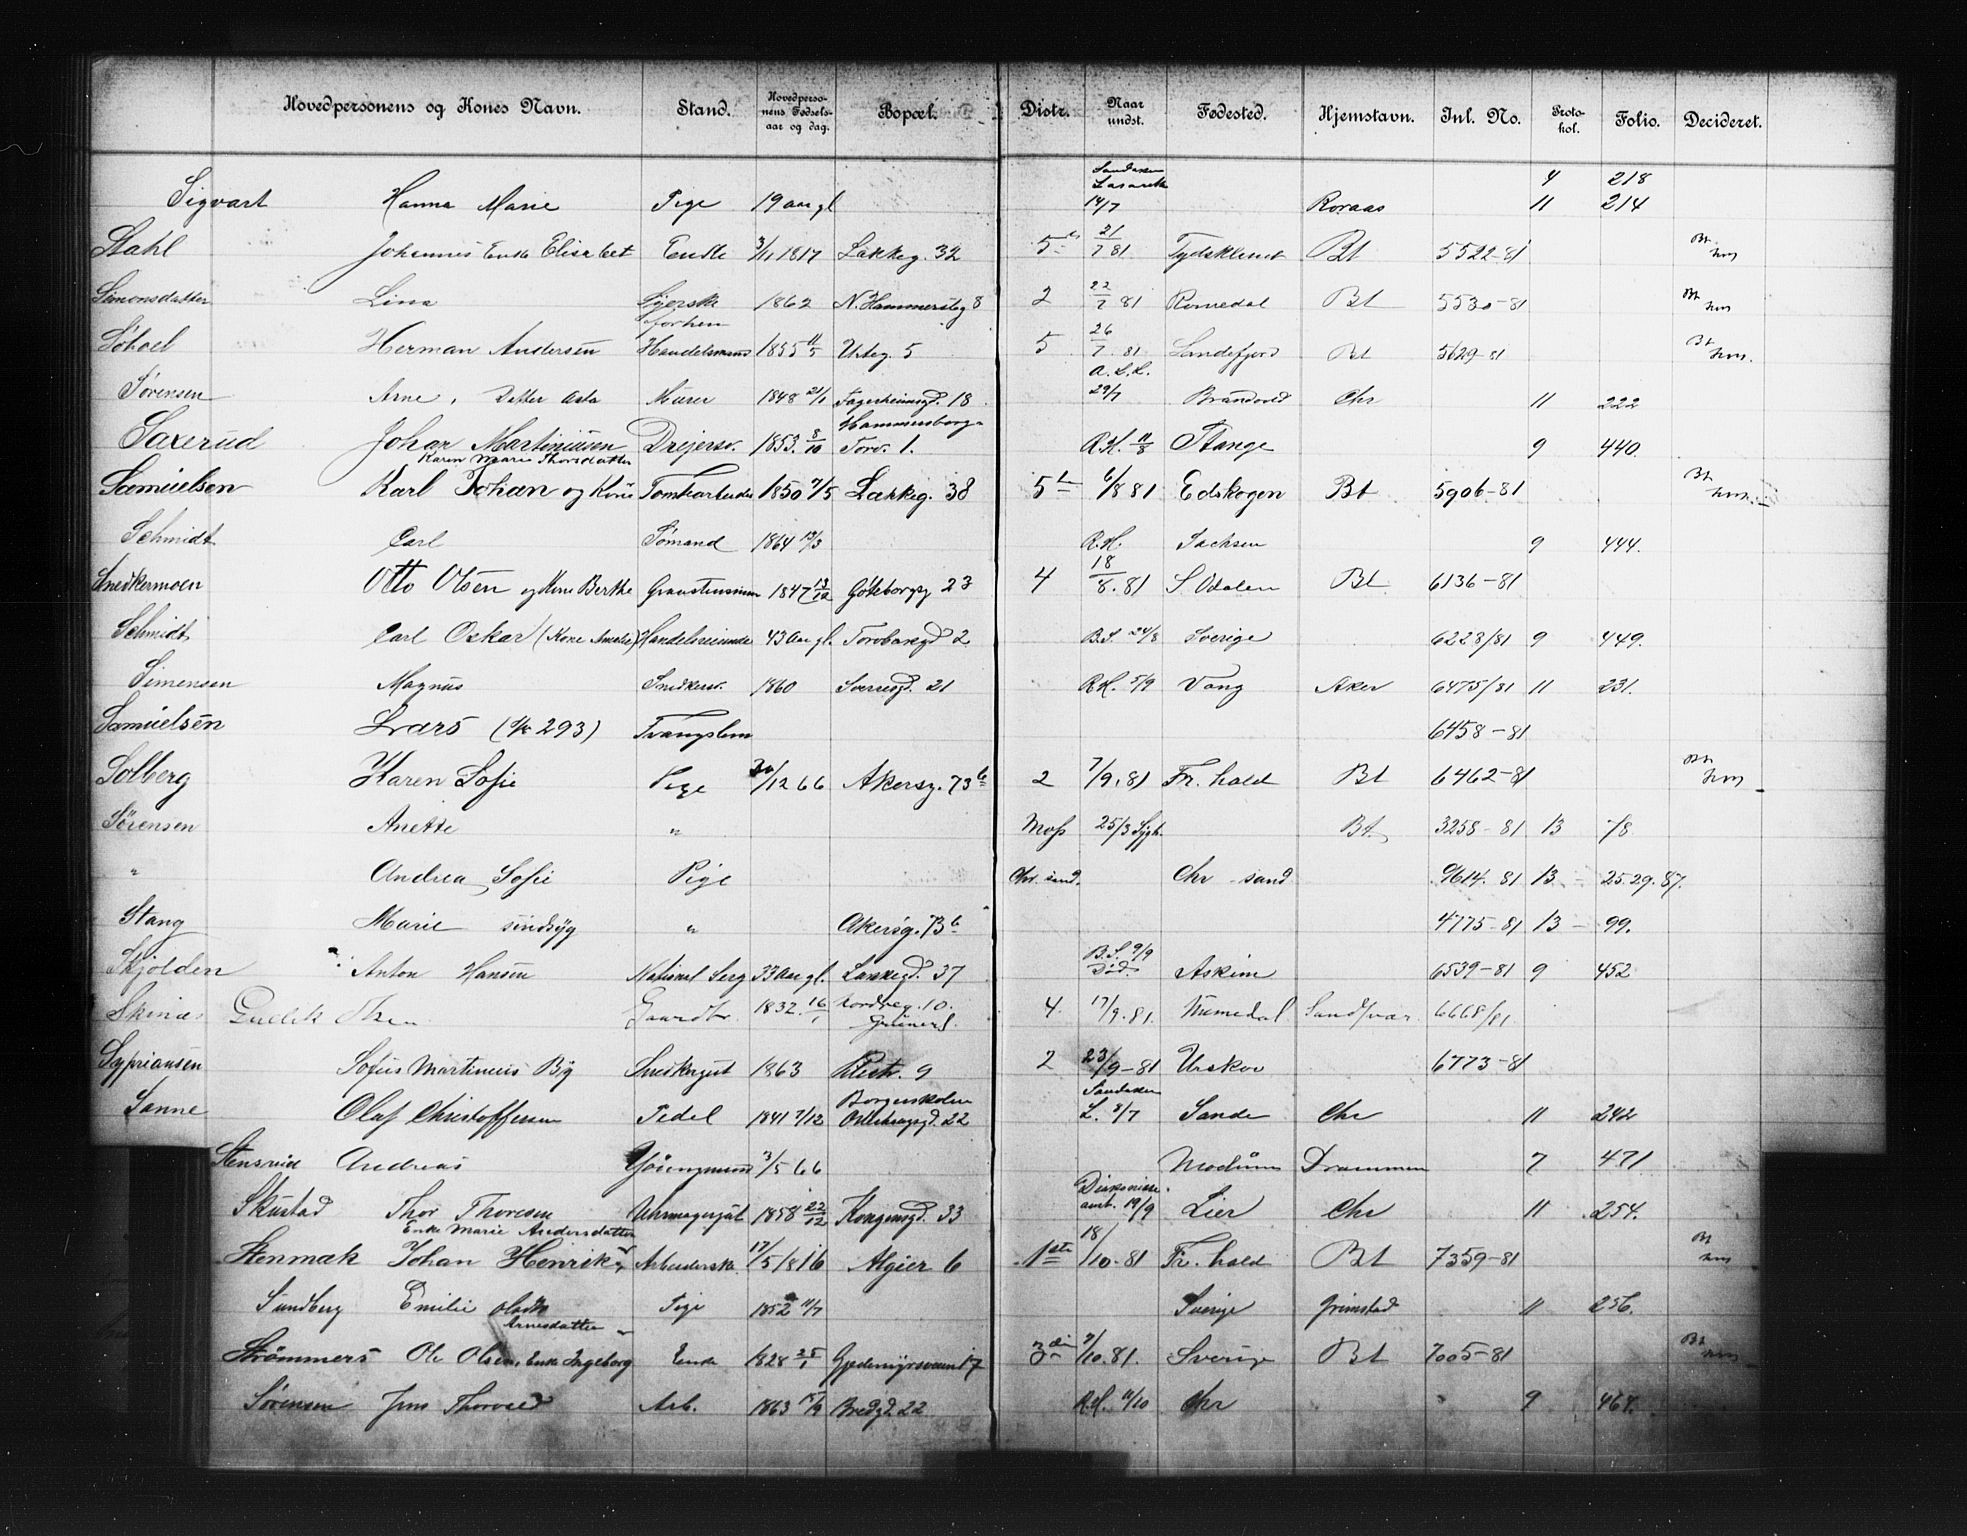 Hovedpersonens og Kones Navn. Stand. Hovedpersonens Fødselsaar og dag. Bopæl. Distr. Naar undst. Fødested. Hjemstavn. Jnl. No. Protokol. Folio. Decideret.
Sandaker Lasareth 4 218
Sigvart Hanna Marie Pige 19 aar gl 14/7 Roraas 11 214
Stahl Johannes Enke Elisabet Enke 3/1 1817 Lakkeg. 32 5te 21/7 81 Tydskland Bt 5522-81 Bt
Simonsdatter Lina Syerske 1862 N. Hammerstbg 8 2 22/7 81 Romedal Bt 5530-81 Bt
forhen
Söhoel Herman Andersen Handelsmand 1855 11/5 Urteg. 5 5 26/7 81 Sandefjord Bt 5629-81 Bt
Sørensen Arne, Datter Asta Murer 1848 21/1 Fagerheimsgd. 18 A.L.L. 29/7 Brandvold Chr 11 222
Hammersborg
Saxerud Johan Martiniusen Drejersv. 1853 8/10 Torv. 1. R.H. 11/8 Stange 9 440.
Karen Marie Thorsdatter
Samuelsen Karl Johan og Kone Tomtearbeider 1850 7/5 Lakkeg. 38 5te 6/8 81 Edskogen Bt 5906-81 Bt
Schmidt Carl Sømand 1864 13/3 R.H. Sachsen 9 444.
Snedkermoen Otto Olsen og Kone Berthe Graastensmurer 1847 13/12 Göteborgg 23 4 18/8. 81 S Odalen Bt 6136-81
Schmidt Carl Oskar (Kone Amalie) Handelsreisende 43 Aar gl. Torvbakgd 2 B.S. 24/8 Sverige 6223/81 9 449.
Simensen Magnus Snedkersv. 1860 Sverresgd. 21 R.H. 5/9 Vang Aker 6475/81 11 231.
Samuelsen Lars (1/2 293) Tvangslem 6458-81
Solberg Karen Sofie Pige 30/12 66 Akersg. 73b 2 7/9. 81 Fr. hald Bt 6462-81 Bt
Sørensen Anette " Moss 25/3 Sygh. Bt. 3258-81 13 78
" Andrea Sofie Pige Chr. sand. Chr sand 9614. 81 13 - 25.29.87.
Stang Marie sindsyg " Akersg. 73b 4775-81 13 - 99.
Skjolden Anton Hansen National Serg 33 Aar gl. Lakkegd. 37 B.S. 9/9 Død Askim 6539-81 9 452
Skinæs Gullik Olsen Gaardbr. 1832. 16/1 Nordreg. 10. Grüners. 4. 17/9. 81. Numedal Sandsvær 6668/81
Sypriansen Sofus Martinius By Snedkergut 1863 2 23/9-81 Urskov 6773-81
Borgerskolen Sandaker
Sanne Olaf Christoffersen Pedel 1841 7/12 22 L. 8/7 Sande Chr 11 242
Stensrud Andreas 3/5 66 Modum Drammen 7 471
Skustad Thor Thoresen Uhrmagersvd 1858 22/12 Kongensgd. 33 Diakonisse anst. 19/9 Lier Chr 11 254.
Enke Marie Andersdatter
Stenmak Johan Henrik Arbeiderske 17/5 1816 Algier 6 1ste 18/10-81 Fr. hald Bt 7359-81 Bt
Sundberg Emilie Pige 1852 11/7 Sverige Grimstad 11 256.
Arnesdatter
Strömmers Ole Olsen, Enke Ingeborg Enke 1828 25/1 Gjedemyrsveien 17 3die 7/10. 81. Sverige Bt 7005-81 Bt
Sørensen Jens Thorvald Arb. 1863 15/9 Bredgd. 22 R.H. 11/10 Chr 9 464.